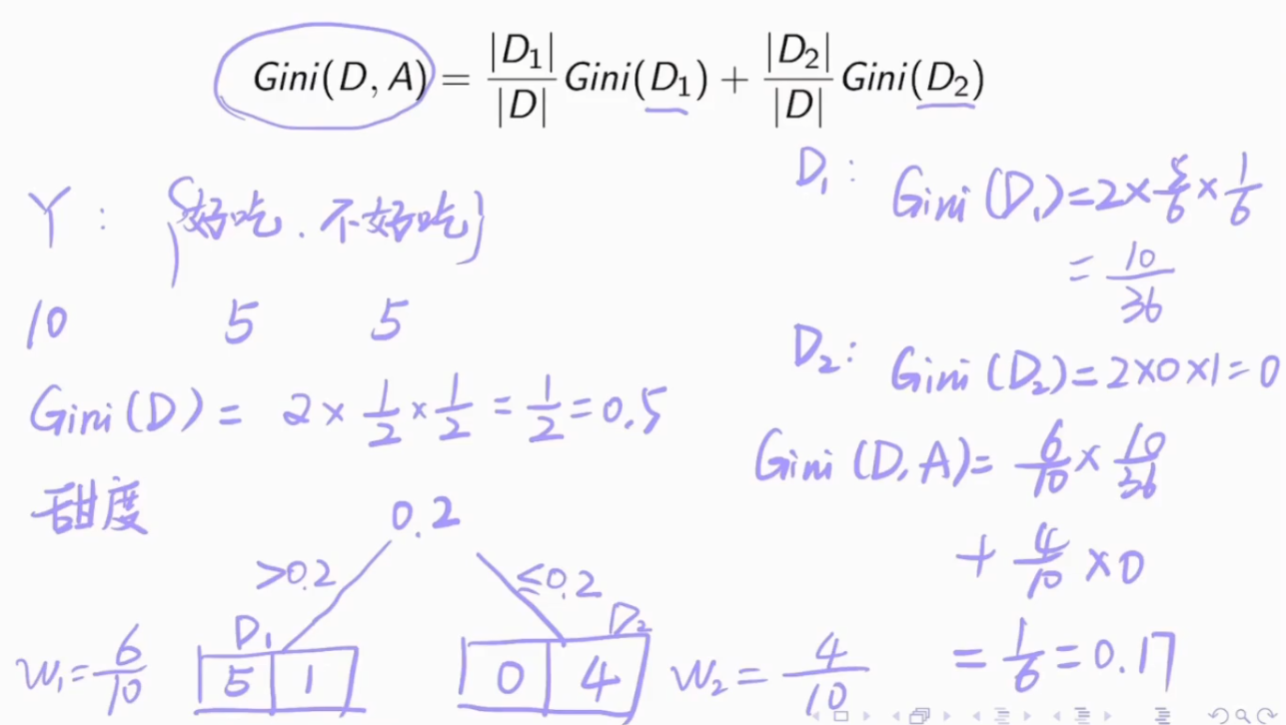 Gini(D, A) = |D₁|/|D| Gini(D₁) + |D₂|/|D| Gini(D₂)
Y: {好吃. 不好吃}
10 5 5
Gini(D) = 2 × 1/2 × 1/2 = 1/2 = 0.5
甜度
0.2
>0.2 ≤0.2
D₁ D₂
W₁ = 6/10 5 1 0 4 W₂ = 4/10
D₁: Gini(D₁) = 2 × 5/6 × 1/6
= 10/36
D₂: Gini(D₂) = 2×0×1 = 0
Gini(D, A) = 6/10 × 10/36
+ 4/10 × 0
= 1/6 = 0.17